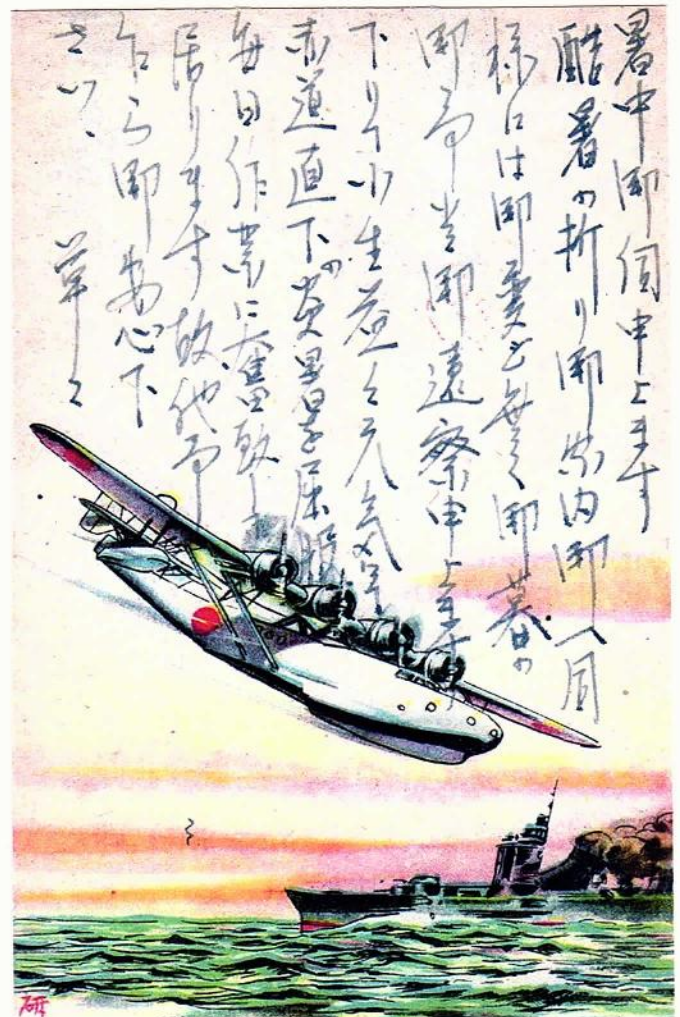 暑中御伺申上ます
酷暑の折り御家内御一同
様には御変り無く御暮の
御事と御遠察申上ます
下りて小生益々元気
赤道直下の炎暑を屈服
毎日作業に奮致し
居ります故他事
乍ら御安心下
さい、 草々